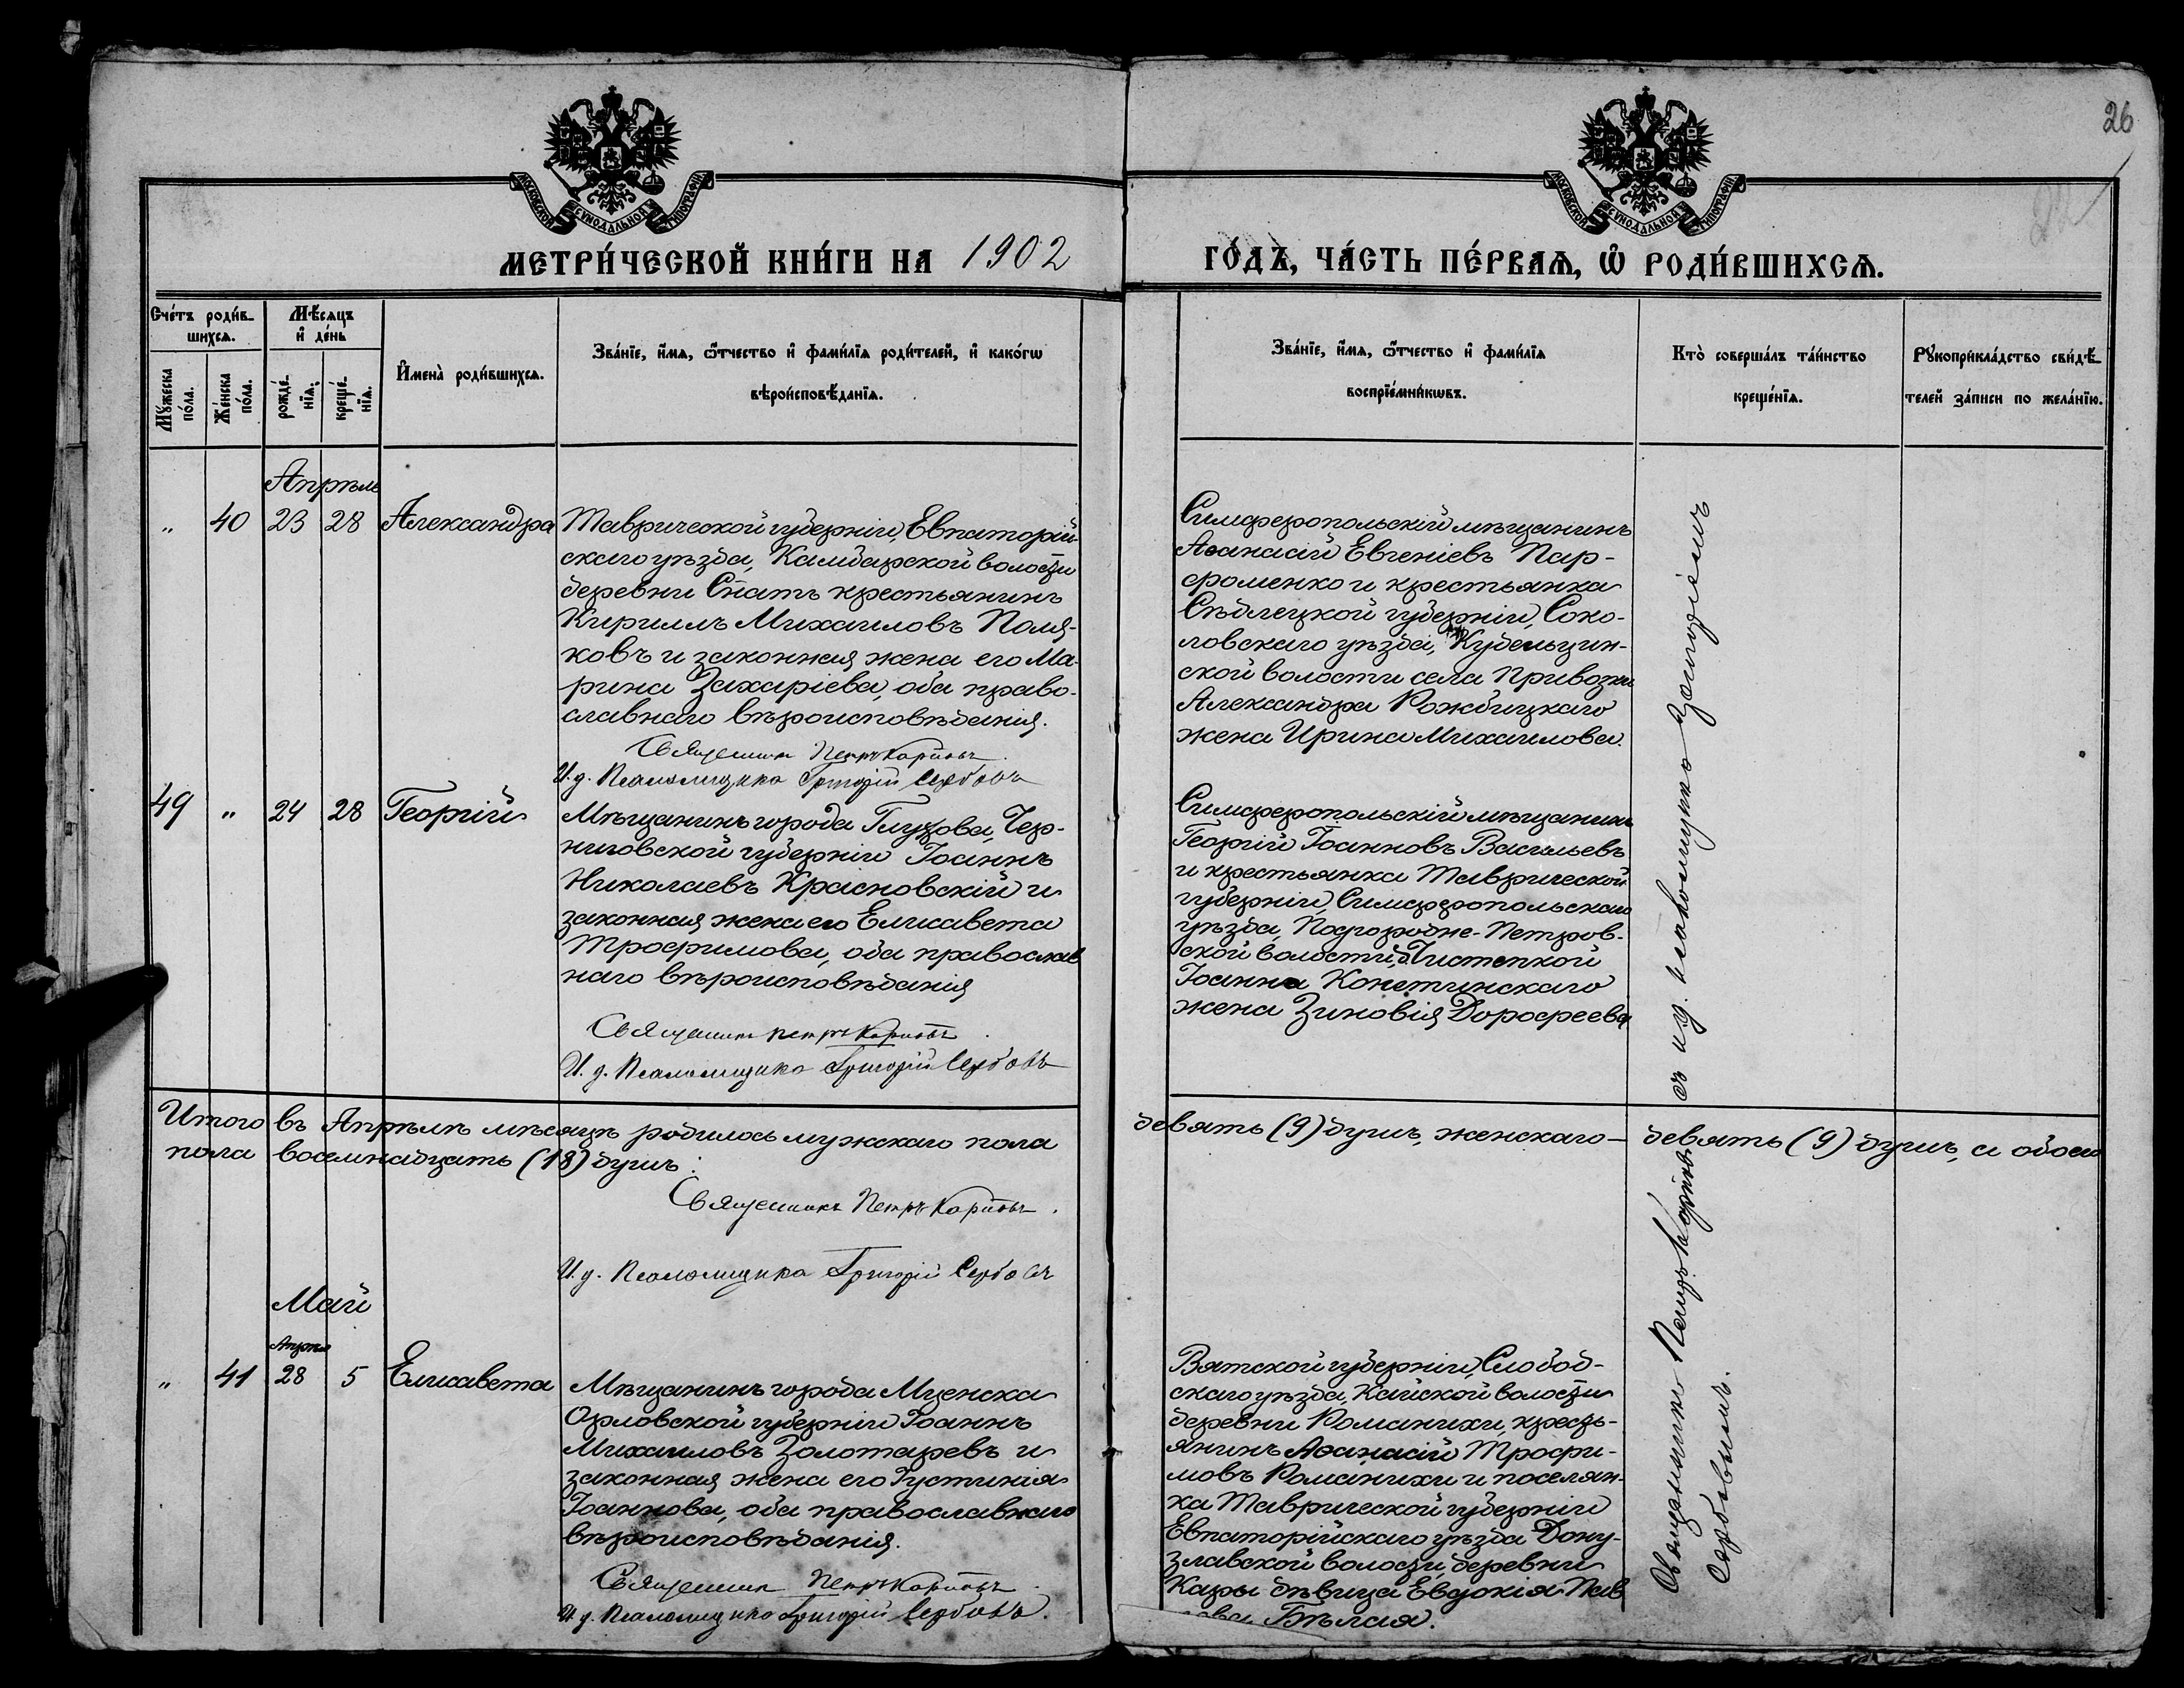 26
МОСКОВСКОЙ СУНОДАЛЬНОЙ ТИПОГРАФІИ
МОСКОВСКОЙ СУНОДАЛЬНОЙ ТИПОГРАФІИ
МЕТРИ́ЧЕСКОЙ КНИ́ГИ НА 1902
ГО́ДЪ, ЧА́СТЬ ПЕ́РВАѦ, Ѡ РОДИ́ВШИХСѦ.
Сче́тъ роди́в-
шихсѧ.
Мѣ́сѧцъ
и де́нь
Мꙋ́жеска по́ла.
Же́нска по́ла.
рожде́-
нїѧ.
креще́-
нїѧ.
Имена̀ роди́вшихсѧ.
Зва́нїе, и́мѧ, ѻ҆́тчество и фами́лїѧ роди́телей, и како́гѡ
вѣроисповѣ́данїѧ.
Зва́нїе, и́мѧ, ѻ҆́тчество и фами́лїѧ
воспрїе́мникѡвъ.
Кто̀ соверша́лъ та́инство
креще́нїѧ.
Рꙋкоприкла́дство свидѣ́-
телей за́писи по жела́нїю.
Апрѣль
„ 40 23 28 Александра
Таврической губерніи, Евпаторій-
скаго уѣзда, Камбарской волости
деревни Спатъ крестьянинъ
Кириллъ Михаиловъ Поля-
ковъ и законная жена его Ма-
рина Захаріева, оба право-
славнаго вѣроисповѣданія.
Священникъ Петръ Карповъ.
И. д. Псаломщика Григорій Сербовъ
Симферопольскій мѣщанинъ
Аѳанасій Евгеніевъ Пар-
фоменко и крестьянка
Сѣдлецкой губерніи, Соко-
ловскаго уѣзда, Кудельчин-
ской волости села Привозки
Александра Рождицкаго
жена Ирина Михаилова.
49 „ 24 28 Георгій
Мѣщанинъ города Глухова, Чер-
ниговской губерніи Іоаннъ
Николаевъ Красновскій и
законная жена его Елисавета
Трофимова, оба православ
наго вѣроисповѣданія
Священникъ Петръ Карповъ.
И. д. Псаломщика Григорій Сербовъ
Симферопольскій мѣщанинъ
Георгій Іоанновъ Васильевъ
и крестьянка Таврической
губерніи, Симферопольскаго
уѣзда, Подгородне-Петров-
ской волости, д. Чистенкой
Іоанна Конетинскаго
жена Зиновія Дорофеева
Итого въ Апрѣлѣ мѣсяцѣ родилось мужскаго пола девять (9) душъ, женскаго — девять (9) душъ, а обоего
пола восемнадцать (18) душъ.
Священникъ Петръ Карповъ.
И. д. Псаломщика Григорій Сербовъ
Май
Апрѣля
„ 41 28 5 Елисавета
Мѣщанинъ города Мценска
Орловской губерніи Іоаннъ
Михаиловъ Золотаревъ и
законная жена его Іустинія
Іоаннова, оба православнаго
вѣроисповѣданія.
Священникъ Петръ Карповъ.
И. д. Псаломщика Григорій Сербовъ.
Вятской губерніи, Слобод-
скаго уѣзда, Кайской волости
деревни Романихи, кресть-
янинъ Аѳанасій Трофи-
мовъ Романихи и поселян-
ка Таврической губерніи
Евпаторійскаго уѣзда Дону-
злавской волости, деревни
Кары дѣвица Евдокія Пав
лова Бѣлая.
Священникъ Петръ Карповъ
съ и. д. псаломщика Григоріемъ
Сербовымъ.